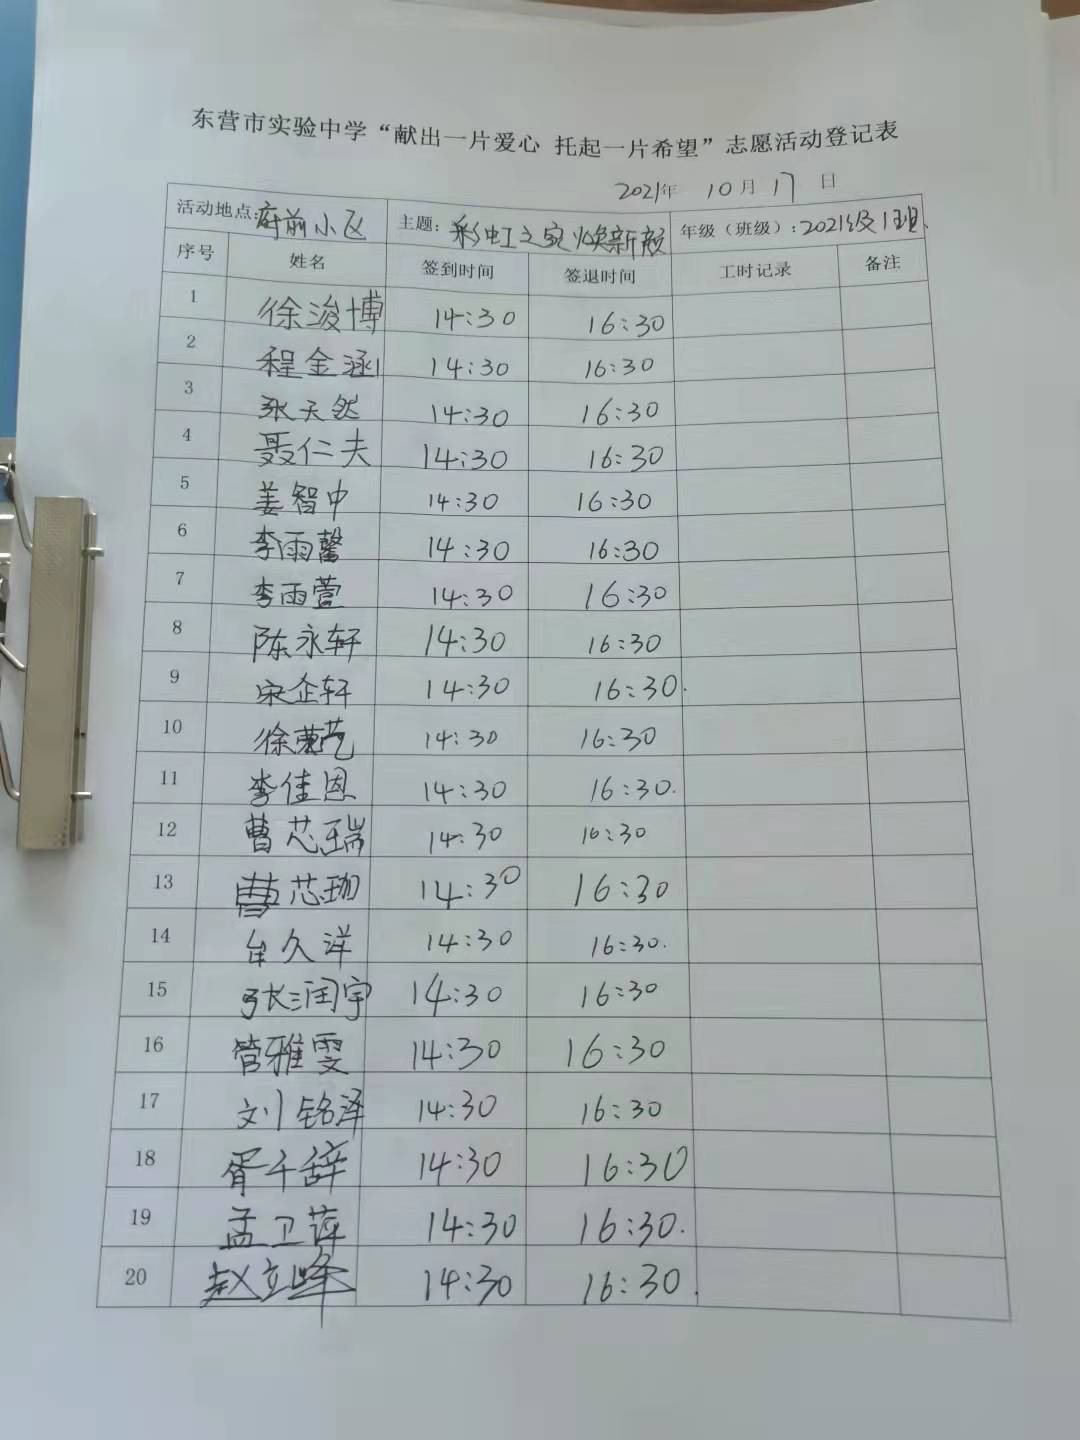 东营市实验中学“献出一片爱心 托起一片希望”志愿活动登记表
2021年 10月17日
活动地点:府前小区 主题:彩虹之家焕新颜 年级（班级）:2021级1班.
序号 姓名 签到时间 签退时间 工时记录 备注
1 徐浚博 14:30 16:30
2 程金涵 14:30 16:30
3 张天然 14:30 16:30
4 聂仁夫 14:30 16:30
5 姜智中 14:30 16:30
6 李雨馨 14:30 16:30
7 李雨萱 14:30 16:30
8 陈永轩 14:30 16:30
9 宋企轩 14:30 16:30.
10 徐 14:30 16:30
11 李佳恩 14:30 16:30.
12 曹芯瑞 14:30 16:30
13 曹芯珈 14:30 16:30
14 牟久洋 14:30 16:30.
15 张润宇 14:30 16:30
16 管雅雯 14:30 16:30
17 刘铭泽 14:30 16:30
18 胥千辞 14:30 16:30
19 孟卫萍 14:30 16:30.
20 赵立峰 14:30 16:30.